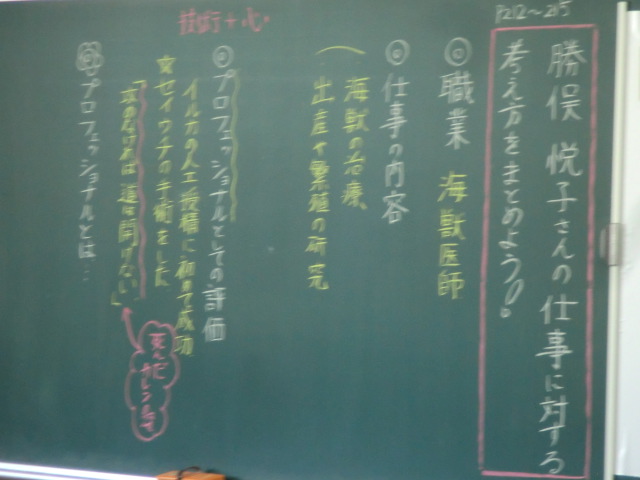 P212〜215
勝俣 悦子さんの仕事に対する
考え方をまとめよう!。
◎職業 海獣医師
◎仕事の内容
海獣の治療、
出産や繁殖の研究
技術+心
◎プロフェッショナルとしての評価
イルカの人工授精に初めて成功
☆セイウチの手術をした
「攻めなければ道は開けない」
死んだ
プロフェッショナルとは…